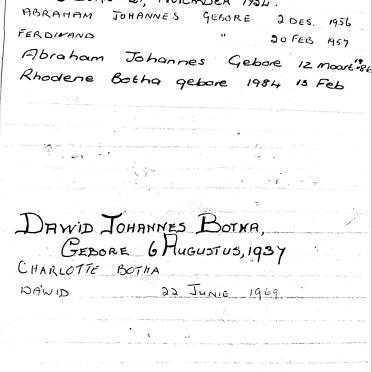 NOVEMBER 1924.
ABRAHAM JOHANNES GEBORE 2 DES. 1956
FERDINAND " 20 FEB 1957
Abraham Johannes Gebore 12 Maart 1986
Rhodene Botha gebore 1984 13 Feb
DAWID JOHANNES BOTHA,
GEBORE 6 AUGUSTUS, 1937
CHARLOTTE BOTHA
DAWID 22 JUNIE 1969